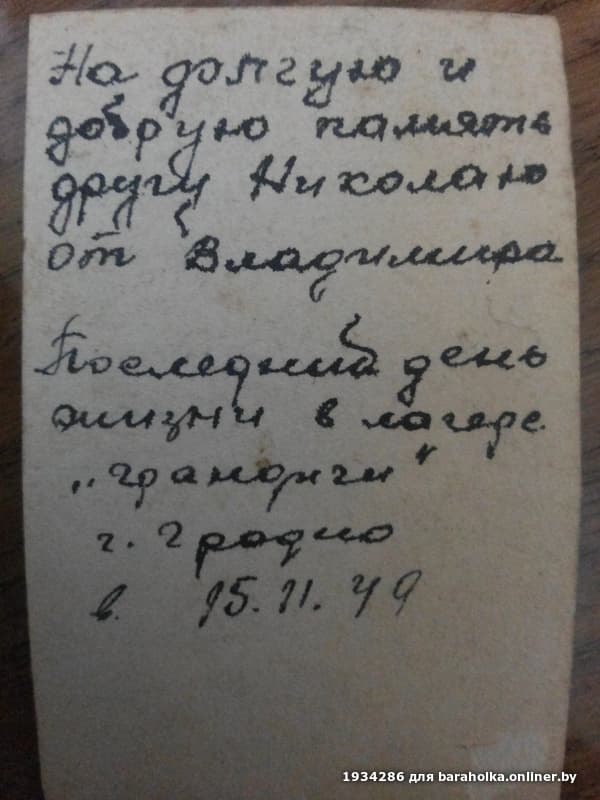 На долгую и
добрую память
другу Николаю
от Владимира
Последний день
жизни в лагере
„Грандичи"
г. Гродно
в. 15.11.49
1934286 для baraholka.onliner.by